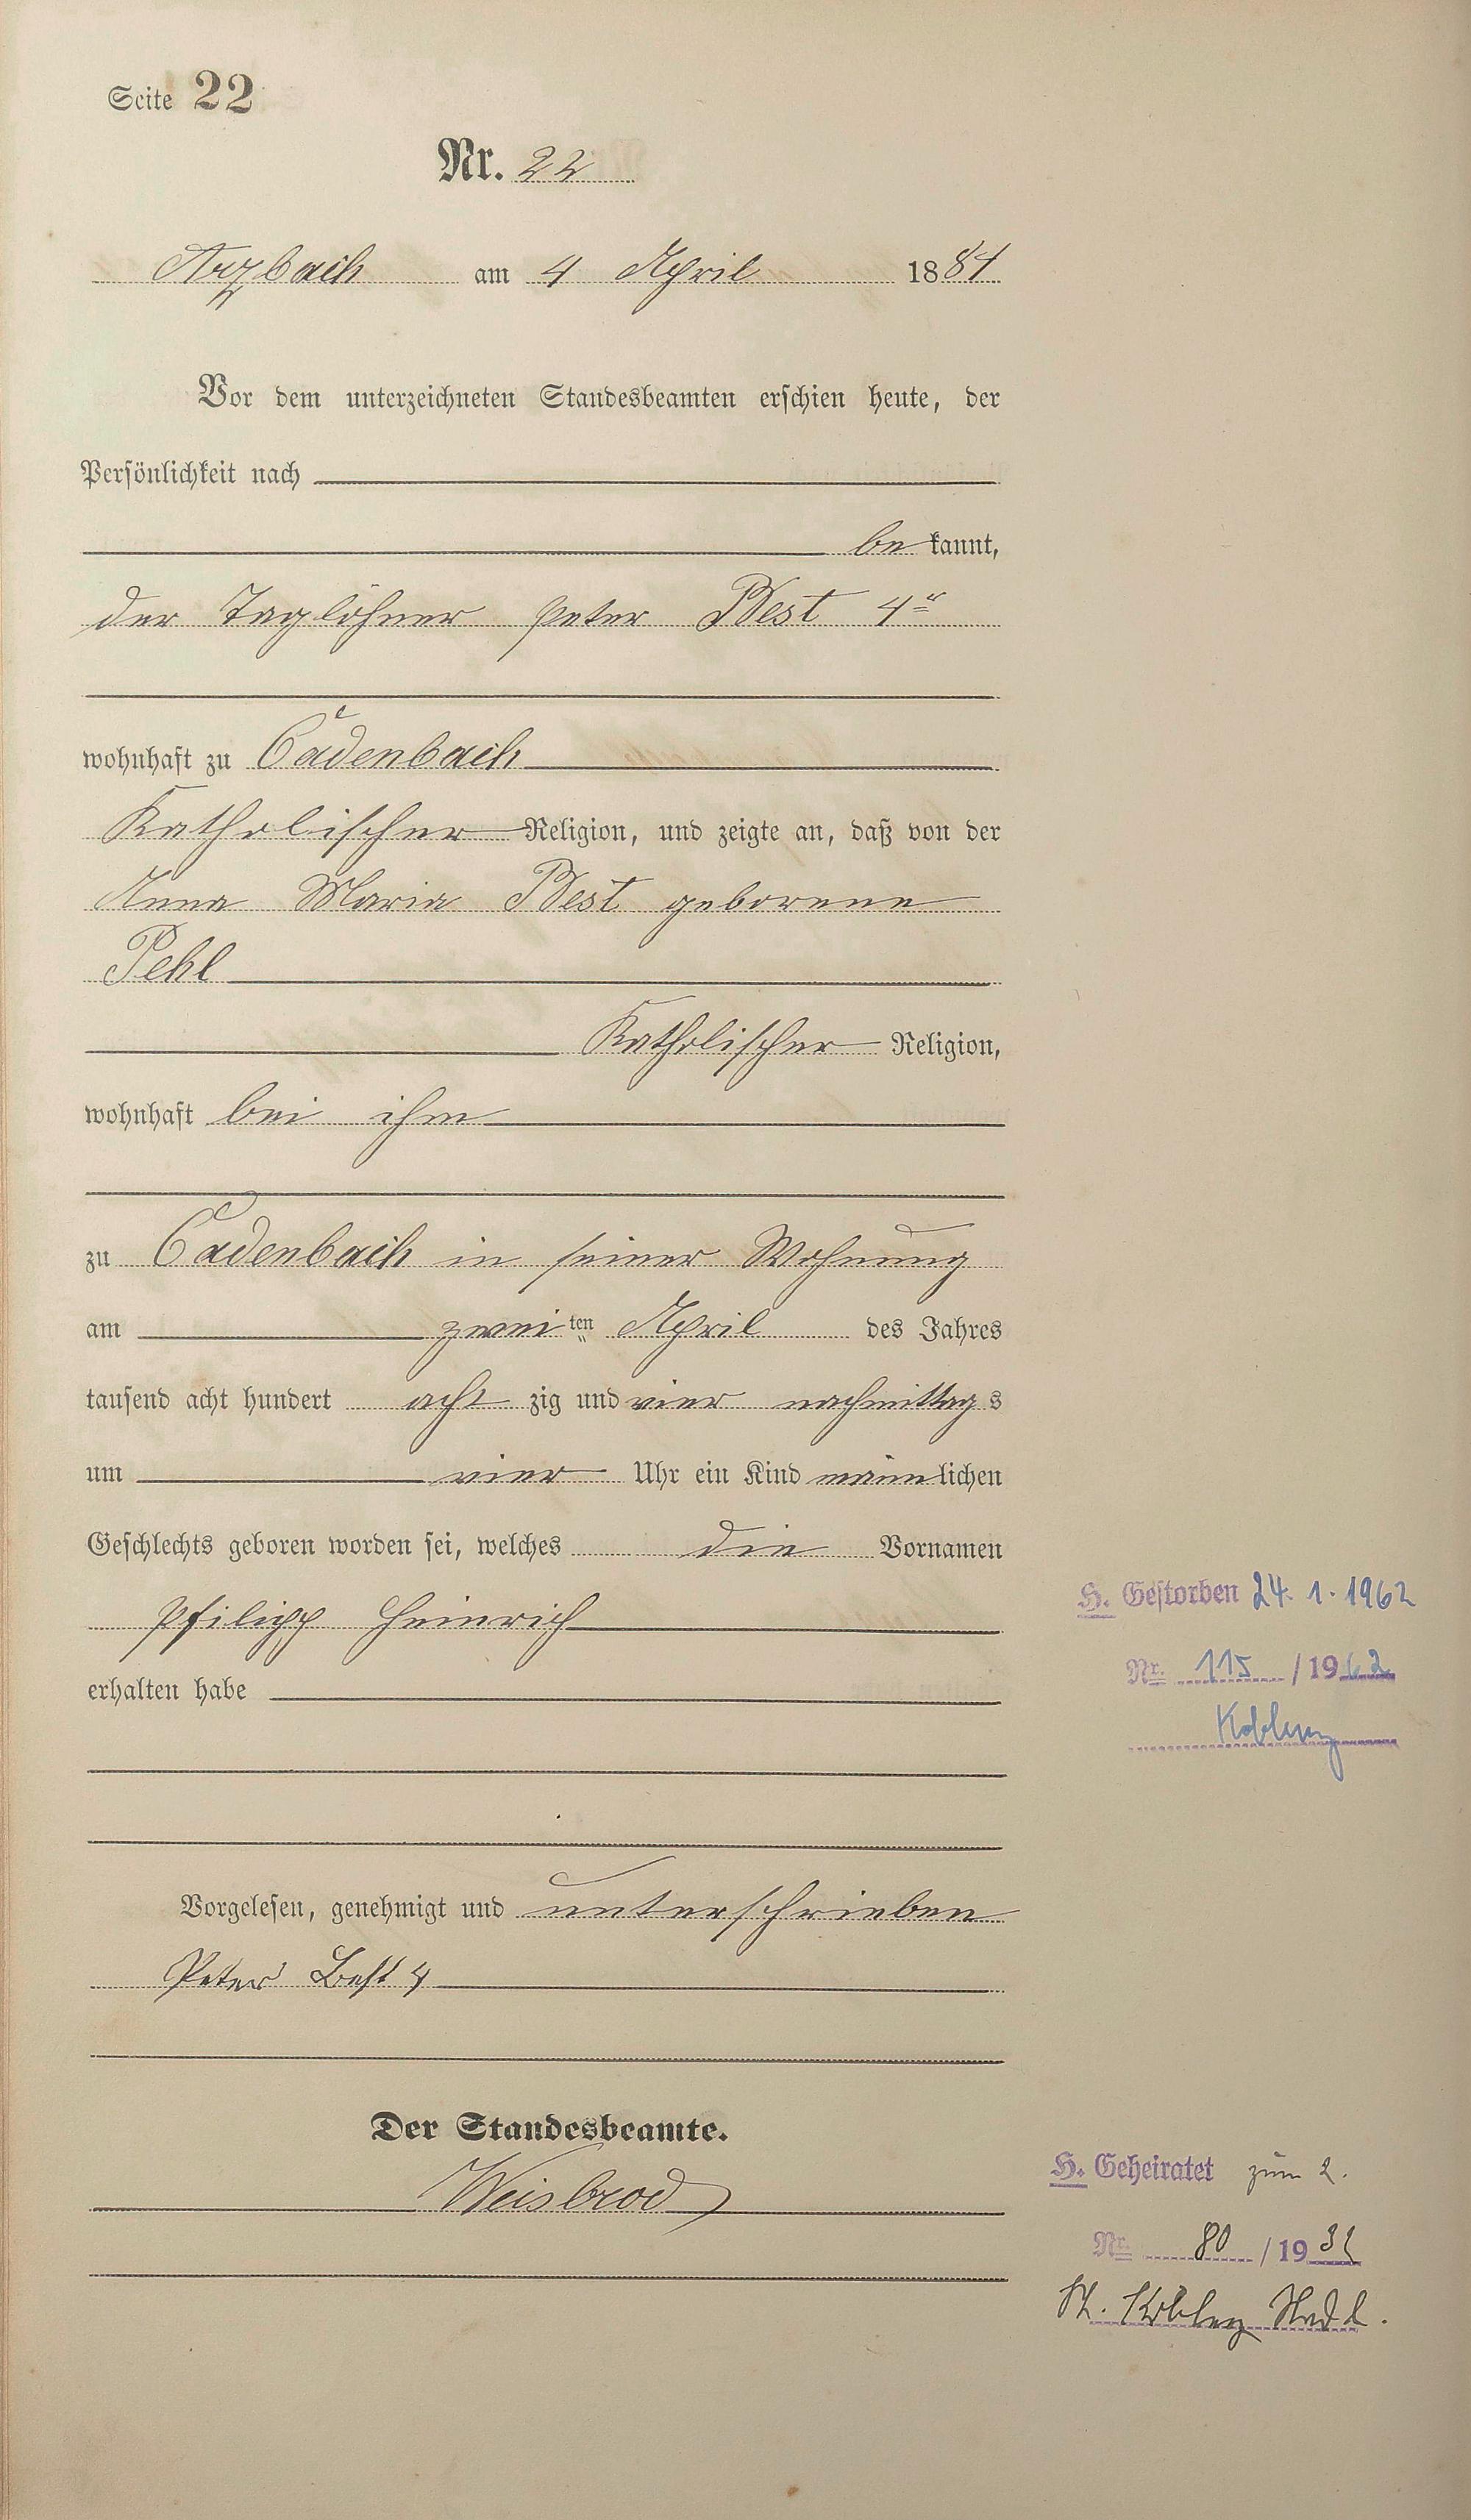 Seite 22
Nr. 22
Arzbach am 4 April 1884
Vor dem unterzeichneten Standesbeamten erschien heute, der
Persönlichkeit nach
be kannt,
der Taglöhner Peter Best 4r
wohnhaft zu Cadenbach
Katholischer Religion, und zeigte an, daß von der
Anna Maria Best geborene
Pehl
Katholischer Religion,
wohnhaft bei ihm
zu Cadenbach in seiner Wohnung
am zweiten April des Jahres
tausend acht hundert acht zig und vier nachmittags
um vier Uhr ein Kind männlichen
Geschlechts geboren worden sei, welches die Vornamen
Philipp Heinrich
erhalten habe
Vorgelesen, genehmigt und unterschrieben
Peter Best 4
Der Standesbeamte.
Weisbrod
H. Gestorben 24. 1. 1962
Nr. 115 / 1962
Koblenz
H. Geheiratet zum 2.
Nr. 80 / 19
Koblenz